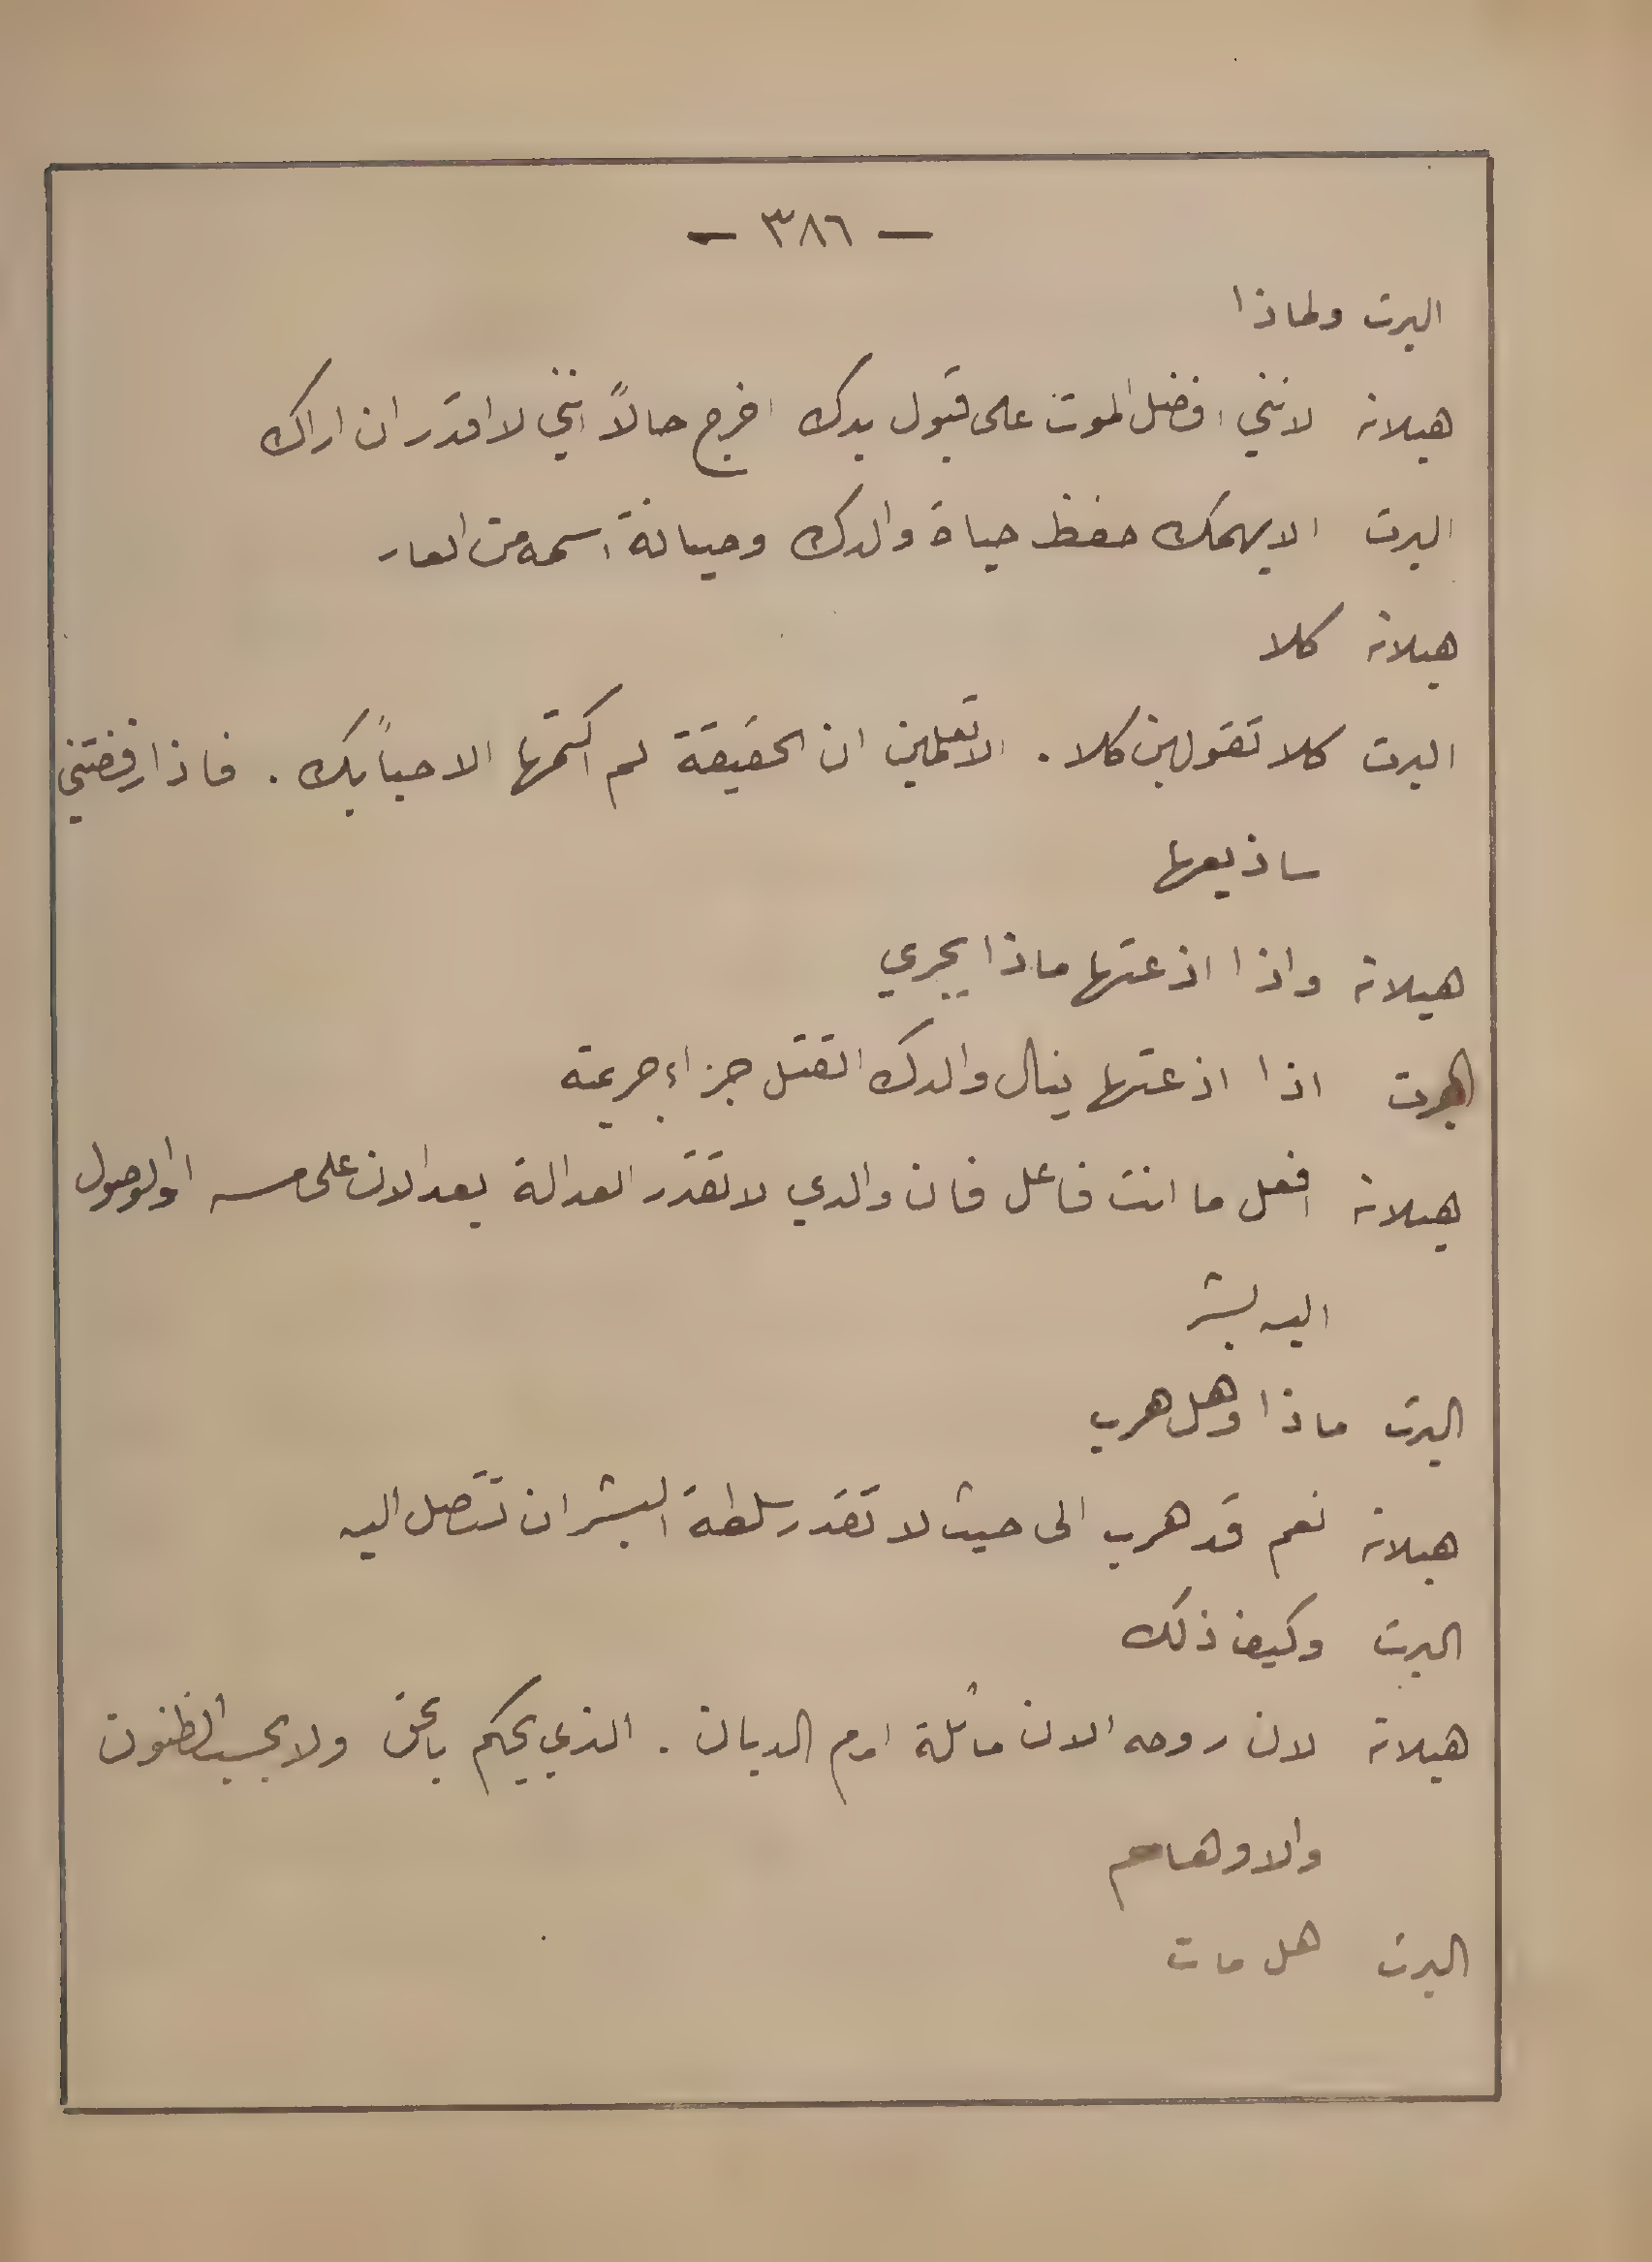 — ٣٨٦ —
البرت ولماذا
هيلانة لانني افضل الموت على قبول يدك اخرج حالاً انني لا اقدر ان اراك
البرت الا يهمك حفظ حياة والدك وصيانة اسمه من العار
هيلانة كلا
البرت كلا تقولين كلا . الا تعلمين ان الحقيقة لم اكتمها الا حباً بك . فاذا رفضتني
ساذيعها
هيلانة واذا اذعتها ماذا يجري
البرت اذا اذعتها ينال والدك القتل جزاء جريمته
هيلانة افعل ما انت فاعل فان والدي لا تقدر العدالة بعد الان على مسه او الوصول
اليه بشر
البرت ماذا وهل هرب
هيلانة نعم قد هرب الى حيث لا تقدر سلطة البشر ان تتصل اليه
البرت وكيف ذلك
هيلانة لان روحه الان ماثلة امام الديان . الذي يحكم بالحق ولا بحسب الظنون
والاوهام
البرت هل مات